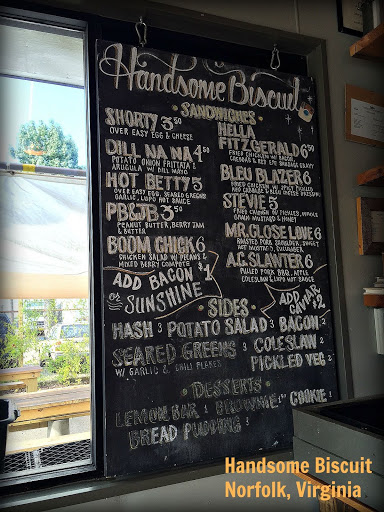 Handsome Biscuit
· SANDWICHES ·
SHORTY 3.50
OVER EASY EGG & CHEESE
DILL NA NA 4.50
POTATO ONION FRITTATA &
ARUGULA W/ DILL MAYO
HOT BETTY 5
OVER EASY EGG, SEARED GREENS
GARLIC, LUPO HOT SAUCE
PB&JB 3.50
PEANUT BUTTER, BERRY JAM
& BUTTER
BOOM CHICK 6
CHICKEN SALAD W/ PECANS &
MIXED BERRY COMPOTE
ADD BACON $1
OR SUNSHINE
HELLA
FITZGERALD 6.50
FRIED CHICKEN W/ BACON,
CHEDDAR & SAUSAGE GRAVY
BLEU BLAZER 6
FRIED CHICKEN W/ SPICY PICKLED
VEG
STEVIE 5
FRIED CHICKEN W/ PICKLES,
GRAIN MUSTARD & HONEY
MR. CLOSE LOVE 6
ROASTED PORK SHOULDER, SWEET
HOT MUSTARD, CUCUMBER
A.C. SLAWTER 6
PULLED PORK BBQ, APPLE
COLESLAW & LUPO HOT SAUCE
ADD
CAVIAR $2
· SIDES ·
HASH 3 POTATO SALAD 3 BACON 2
SEARED GREENS 3 COLESLAW 3
W/ GARLIC & CHILI FLAKES
PICKLED VEG 2
· DESSERTS ·
LEMON BAR 2 BROWNIE COOKIE 1
BREAD PUDDING 3
Handsome Biscuit
Norfolk, Virginia